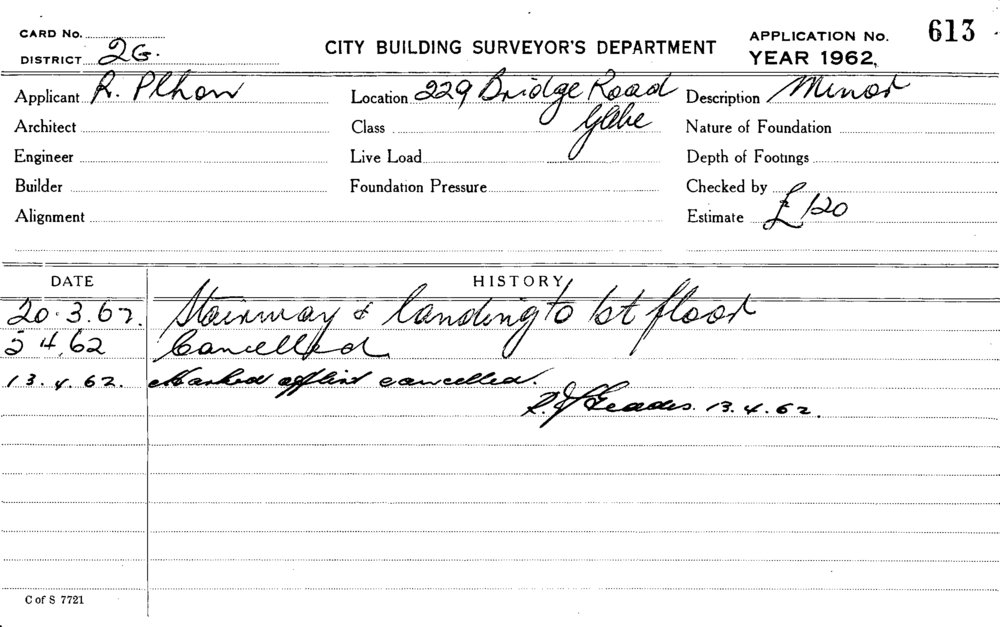 CARD No.
DISTRICT 2G.
CITY BUILDING SURVEYOR'S DEPARTMENT
APPLICATION No. 613
YEAR 1962,
Applicant R. Plhon Location 229 Bridge Road Description Minor
Architect Class Glebe Nature of Foundation
Engineer Live Load Depth of Footings
Builder Foundation Pressure Checked by
Alignment Estimate £120
DATE HISTORY
20.3.62. Stairway & landing to 1st floor
5 4,62 Cancelled
13.4.62. Marked off list cancelled.
13.4.62.
C of S 7721